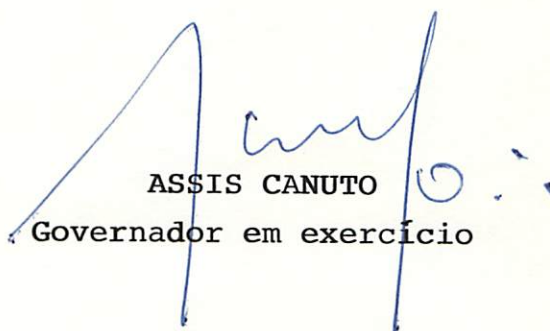 ASSIS CANUTO
Governador em exercício